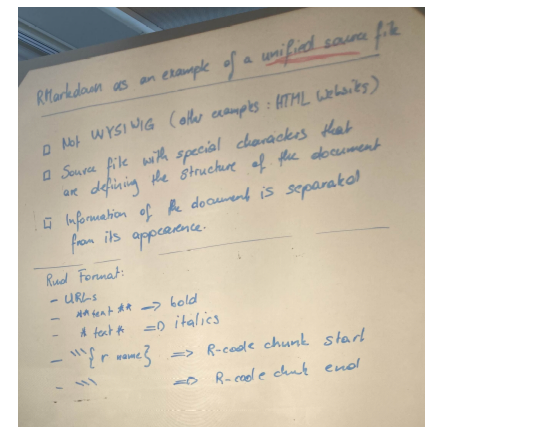 RMarkdown as an example of a unified source file
□ Not WYSIWIG (other examples: HTML websites)
□ Source file with special characters that
are defining the structure of the document
□ Information of the document is separated
from its appearence.
Rmd Format:
- URLs
- **text** → bold
- *text* => italics
- ```{r name} => R-code chunk start
- ``` => R-code chunk end